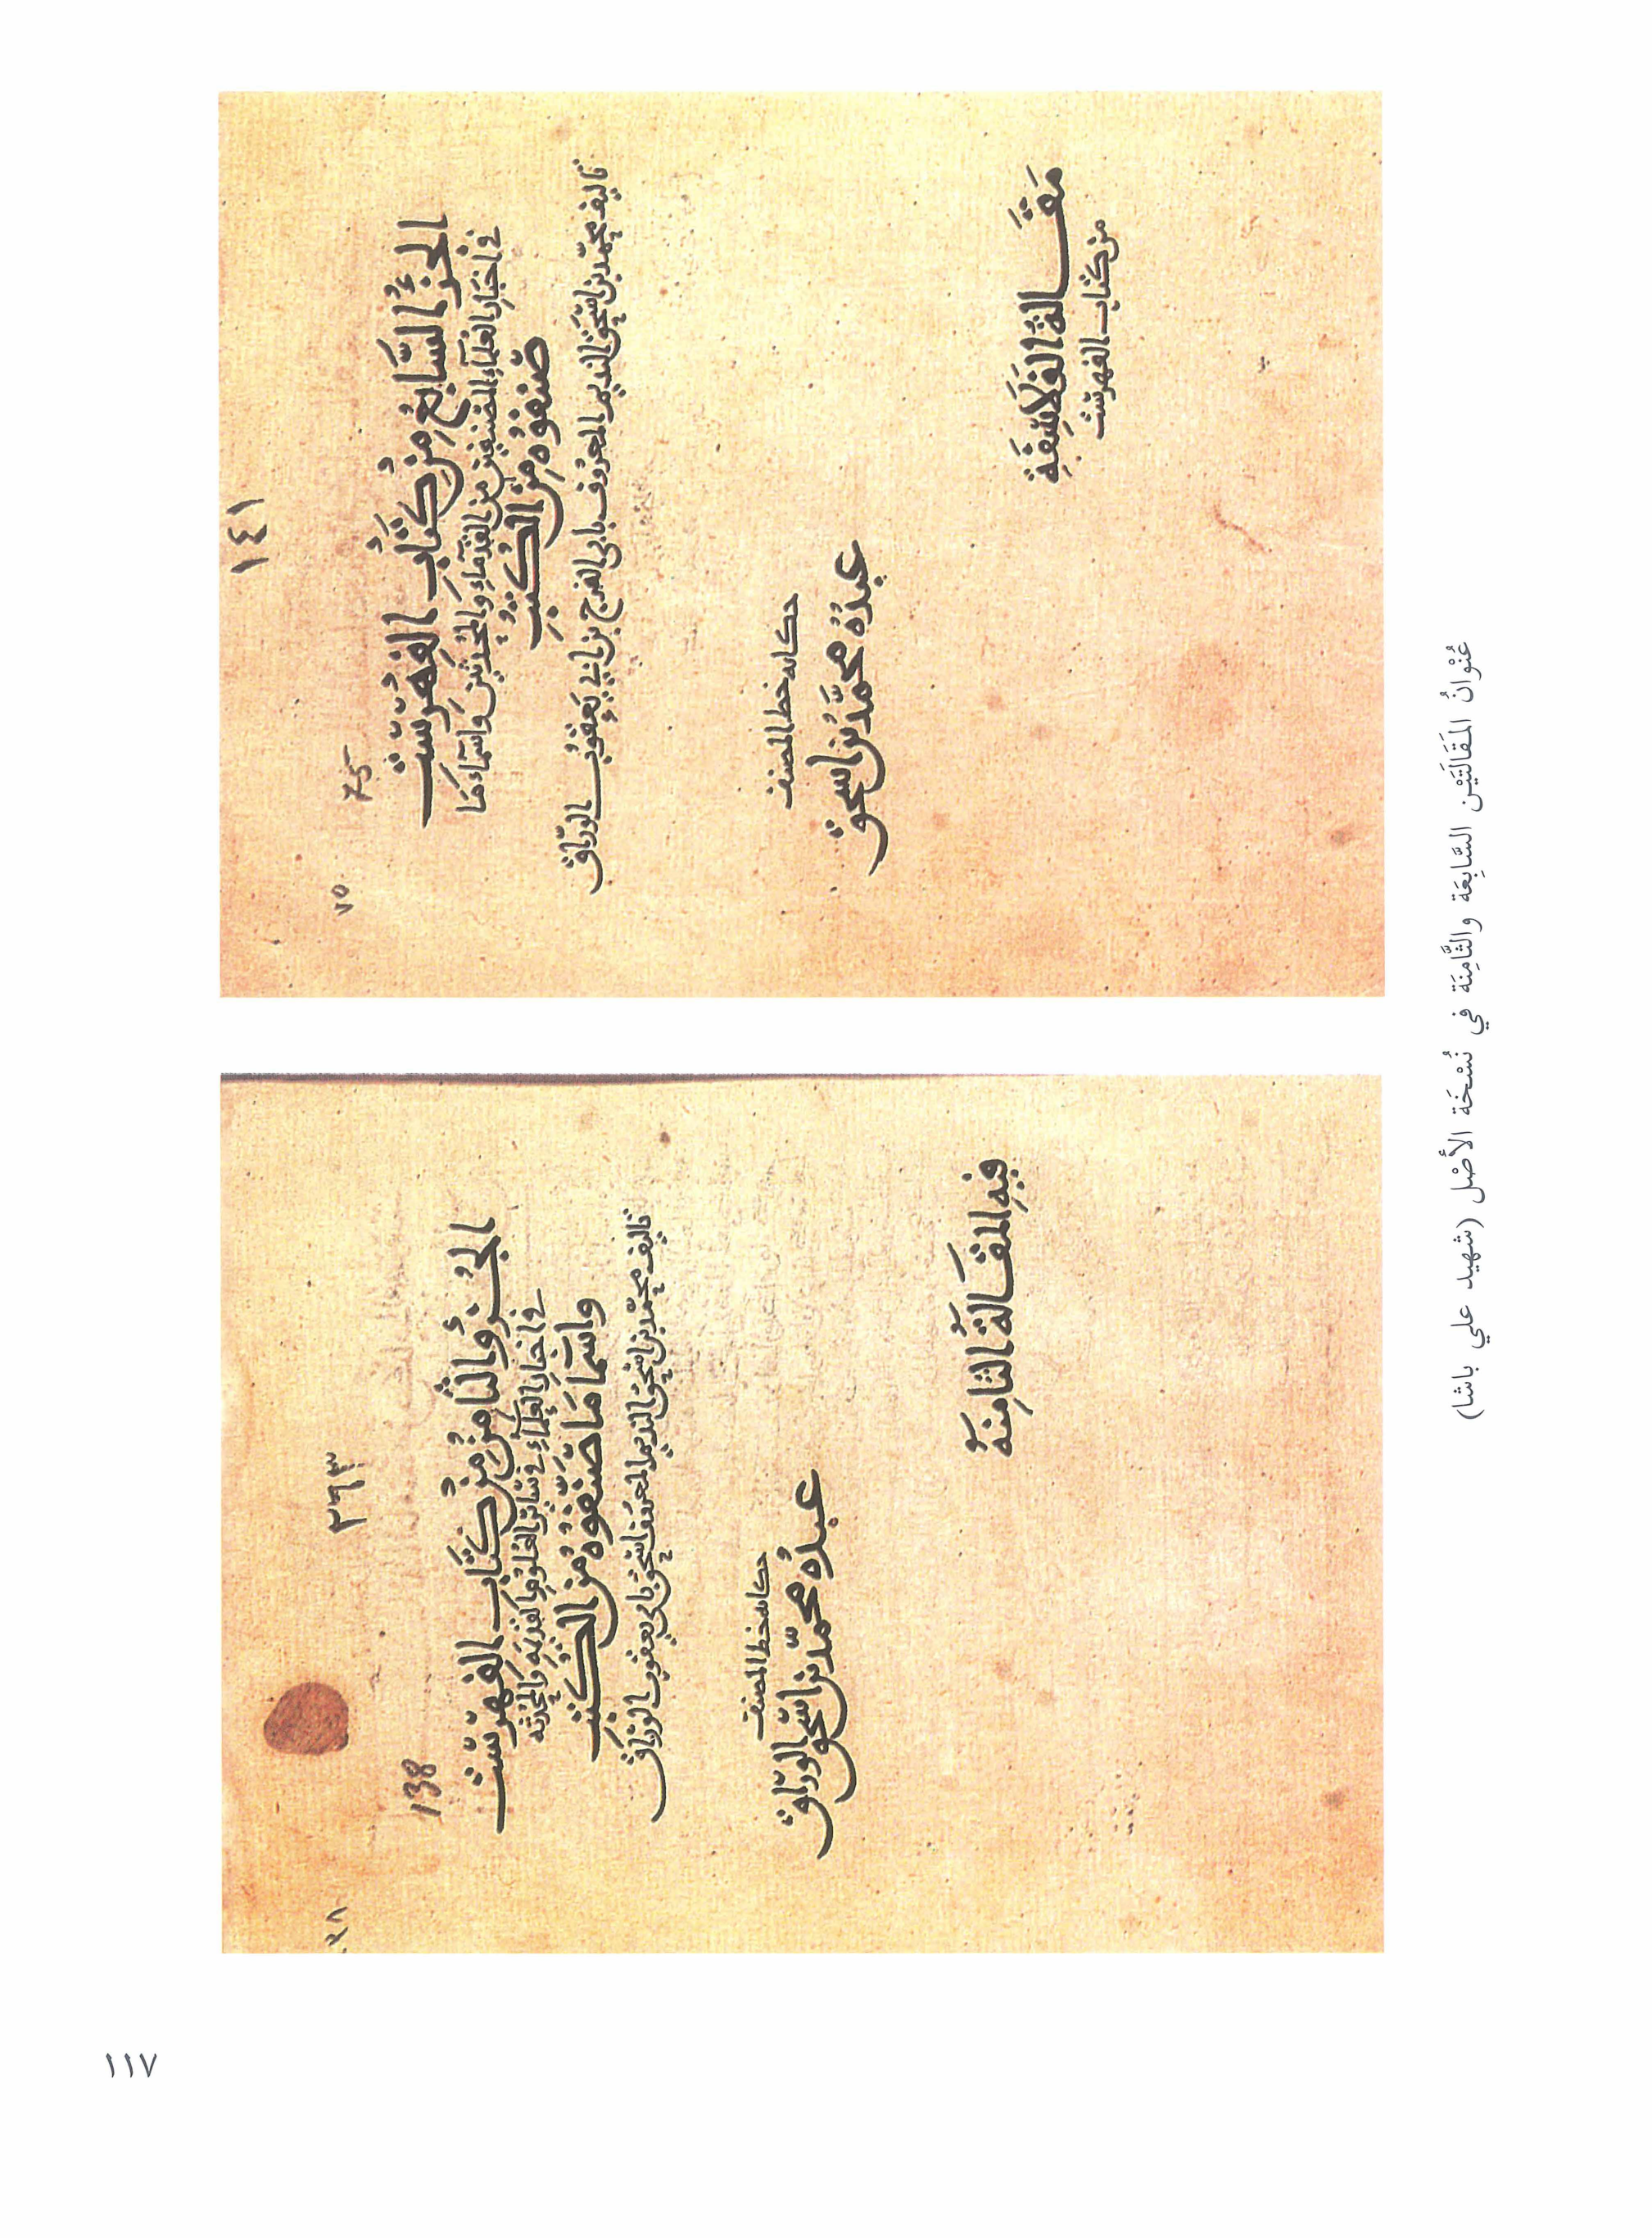 ١٤١
75
٧٥
الجزءُ السَّابعُ مِنْ كتَابِ الفِهْرِسْت
في اخبار العلماء المصنفين من القدماء والمحدثين واسماء ما
صَنفُوهُ مِنَ الكُتبِ
تاليف محمد بن اسحق النديم المعروف بابي الفرج بن ابي يعقوب الوراق
حكاية خط المصنف
عبدُهُ محمَّد بن اسحق
مَقَالةُ الفَلاسِفَةِ
من كتاب الفهرست
٢٦٣
138
الجُزءُ الثامنُ مِنْ كتَاب الفِهرِسْت
في اخبار العلماء في سائر العلوم القديمه والمحدثه
واسْمَا مَا صَنَّفُوهُ مِنَ الكتب
تاليف محمد بن اسحق النديم المعروف اسحق بابي يعقوب الوراق
حكاية خط المصنف
عبدُه محمّد بن اسْحق الورّاق
فيهِ المقَالةُ الثامِنةُ
عُنْوانُ المَقَالَتَيْن السَّابِعَة والثَّامِنَة في نُسْخَة الأصْل (شهيد علي باشا)
١١٧